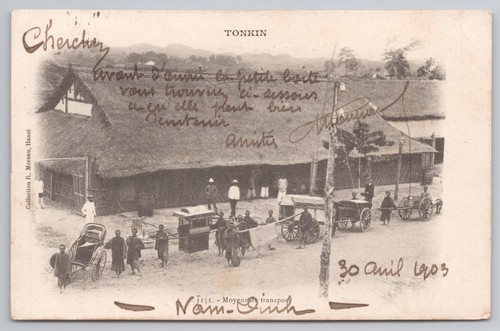 TONKIN
Cherchez
Avant d'ouvrir la petite boîte
vous trouverez ci-dessous
ce qu'elle peut bien
contenir
Amitiés
Collection R. Moreau, Hanoï
1151. - Moyens de transport
30 avril 1903
- Nam-Dinh -